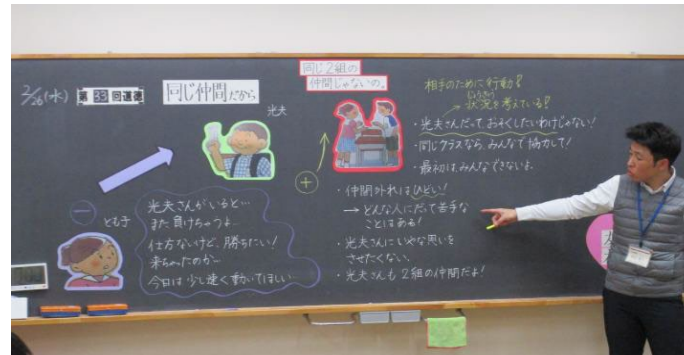 2/26(水)
第33回道徳
同じ仲間だから
光夫
同じ2組の
仲間じゃないの。
相手のために行動!!
→ 状況を考えている!!
・光夫さんだっておそくしたいわけじゃない!
・同じクラスなら、みんなで協力して!
・最初は、みんなできないよ。
+
・仲間外れはひどい!
→ どんな人にだって苦手な
ことはある!
・光夫さんにいやな思いを
させたくない。
・光夫さんも2組の仲間だよ!
−
とも子
光夫さんがいると…
また負けちゃうよ…
仕方ないけど、勝ちたい!
今日は少し速く動いてほしい…